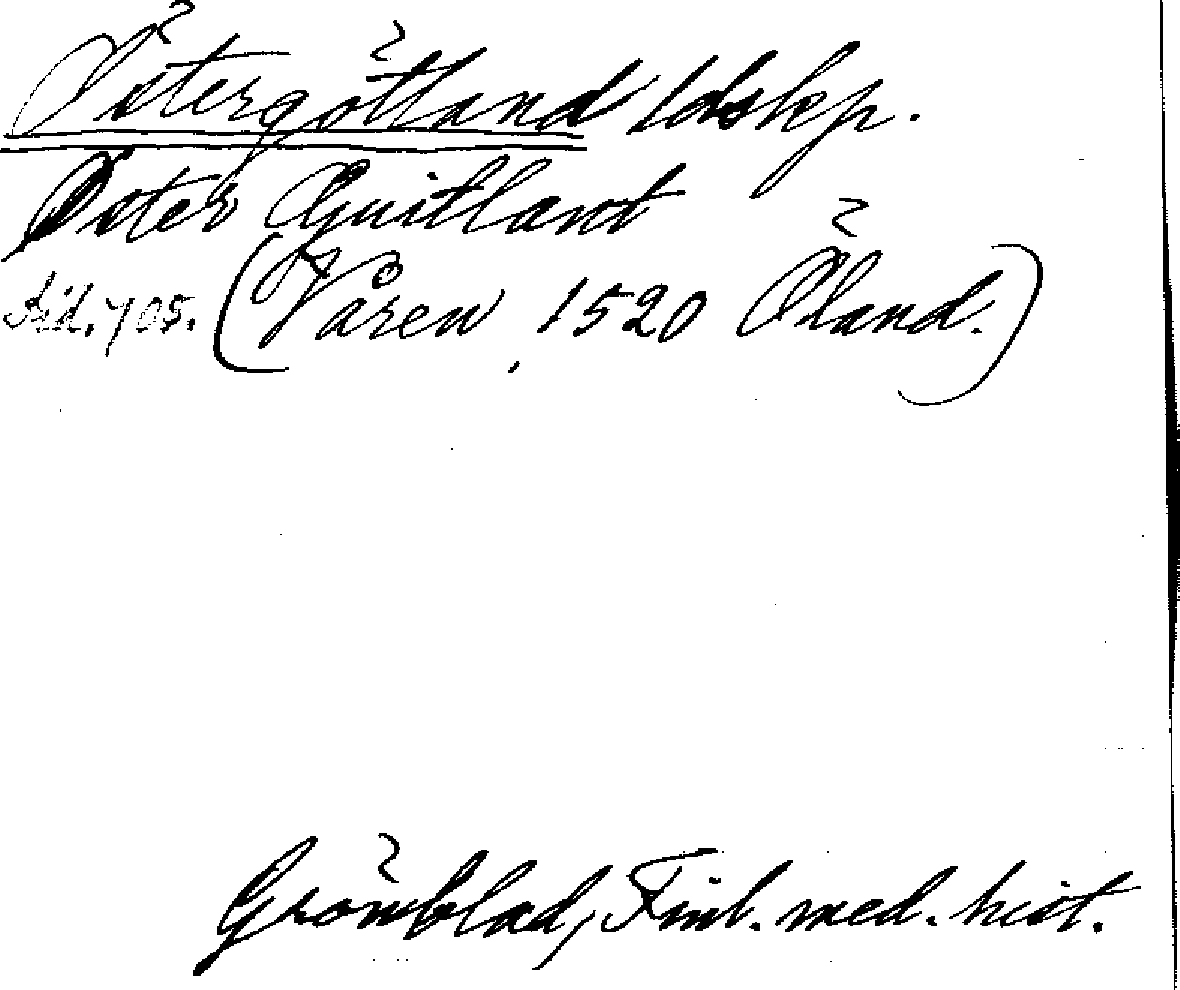 Östergötland ldskp.
Oster Guitlant
Sid. 705. (Våren, 1520 Öland.)
Grönblad, Finl. med. hist.